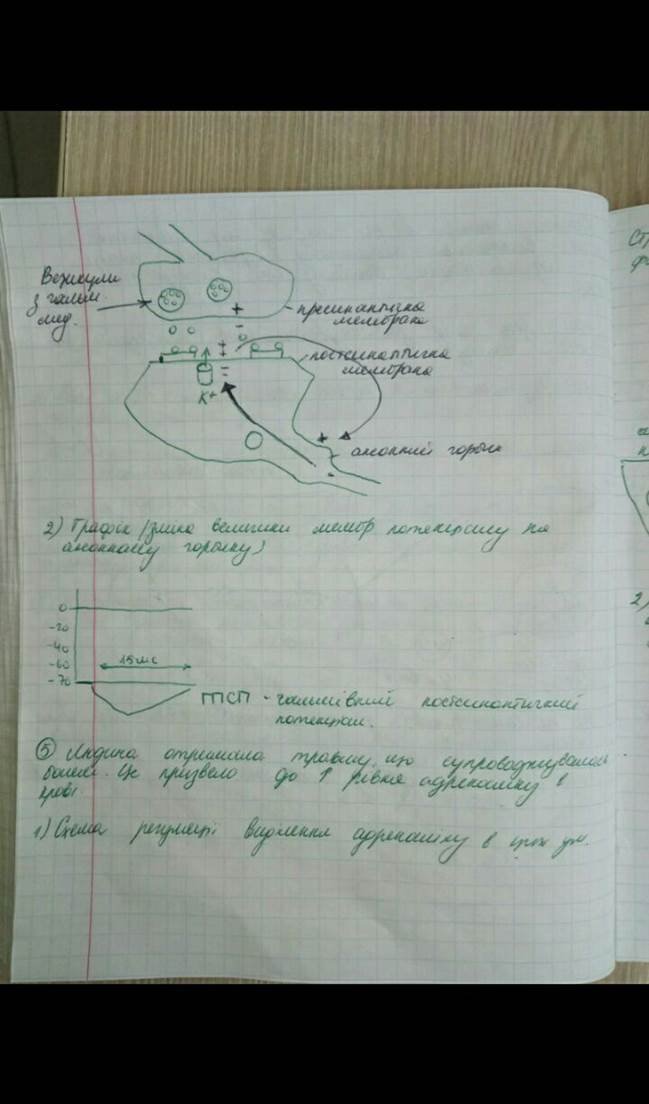 Везикули
з гальм.
мед.
+
-
пресинаптична
мембрана
постсинаптична
мембрана
K+
+
аксонний горбик
2) Графік (зміна величини мембр. потенціалу на
аксонному горбику)
0
-20
-40
-60
-70
15мс
ГПСП - гальмівний постсинаптичний
потенціал.
⑤ Людина отримала травму, що супроводжувалась
болем. Це призвело до ↑ рівня адреналіну в
крові.
1) Схема регуляції виділення адреналіну в цих ум.
2)